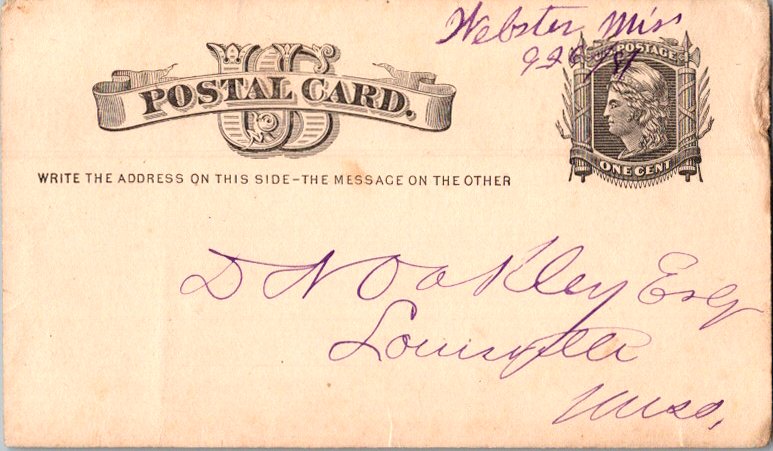 Webster Miss
U S
POSTAGE
POSTAL CARD.
ONE CENT
WRITE THE ADDRESS ON THIS SIDE–THE MESSAGE ON THE OTHER
D N Oakley Esq
Louisville
Miss,